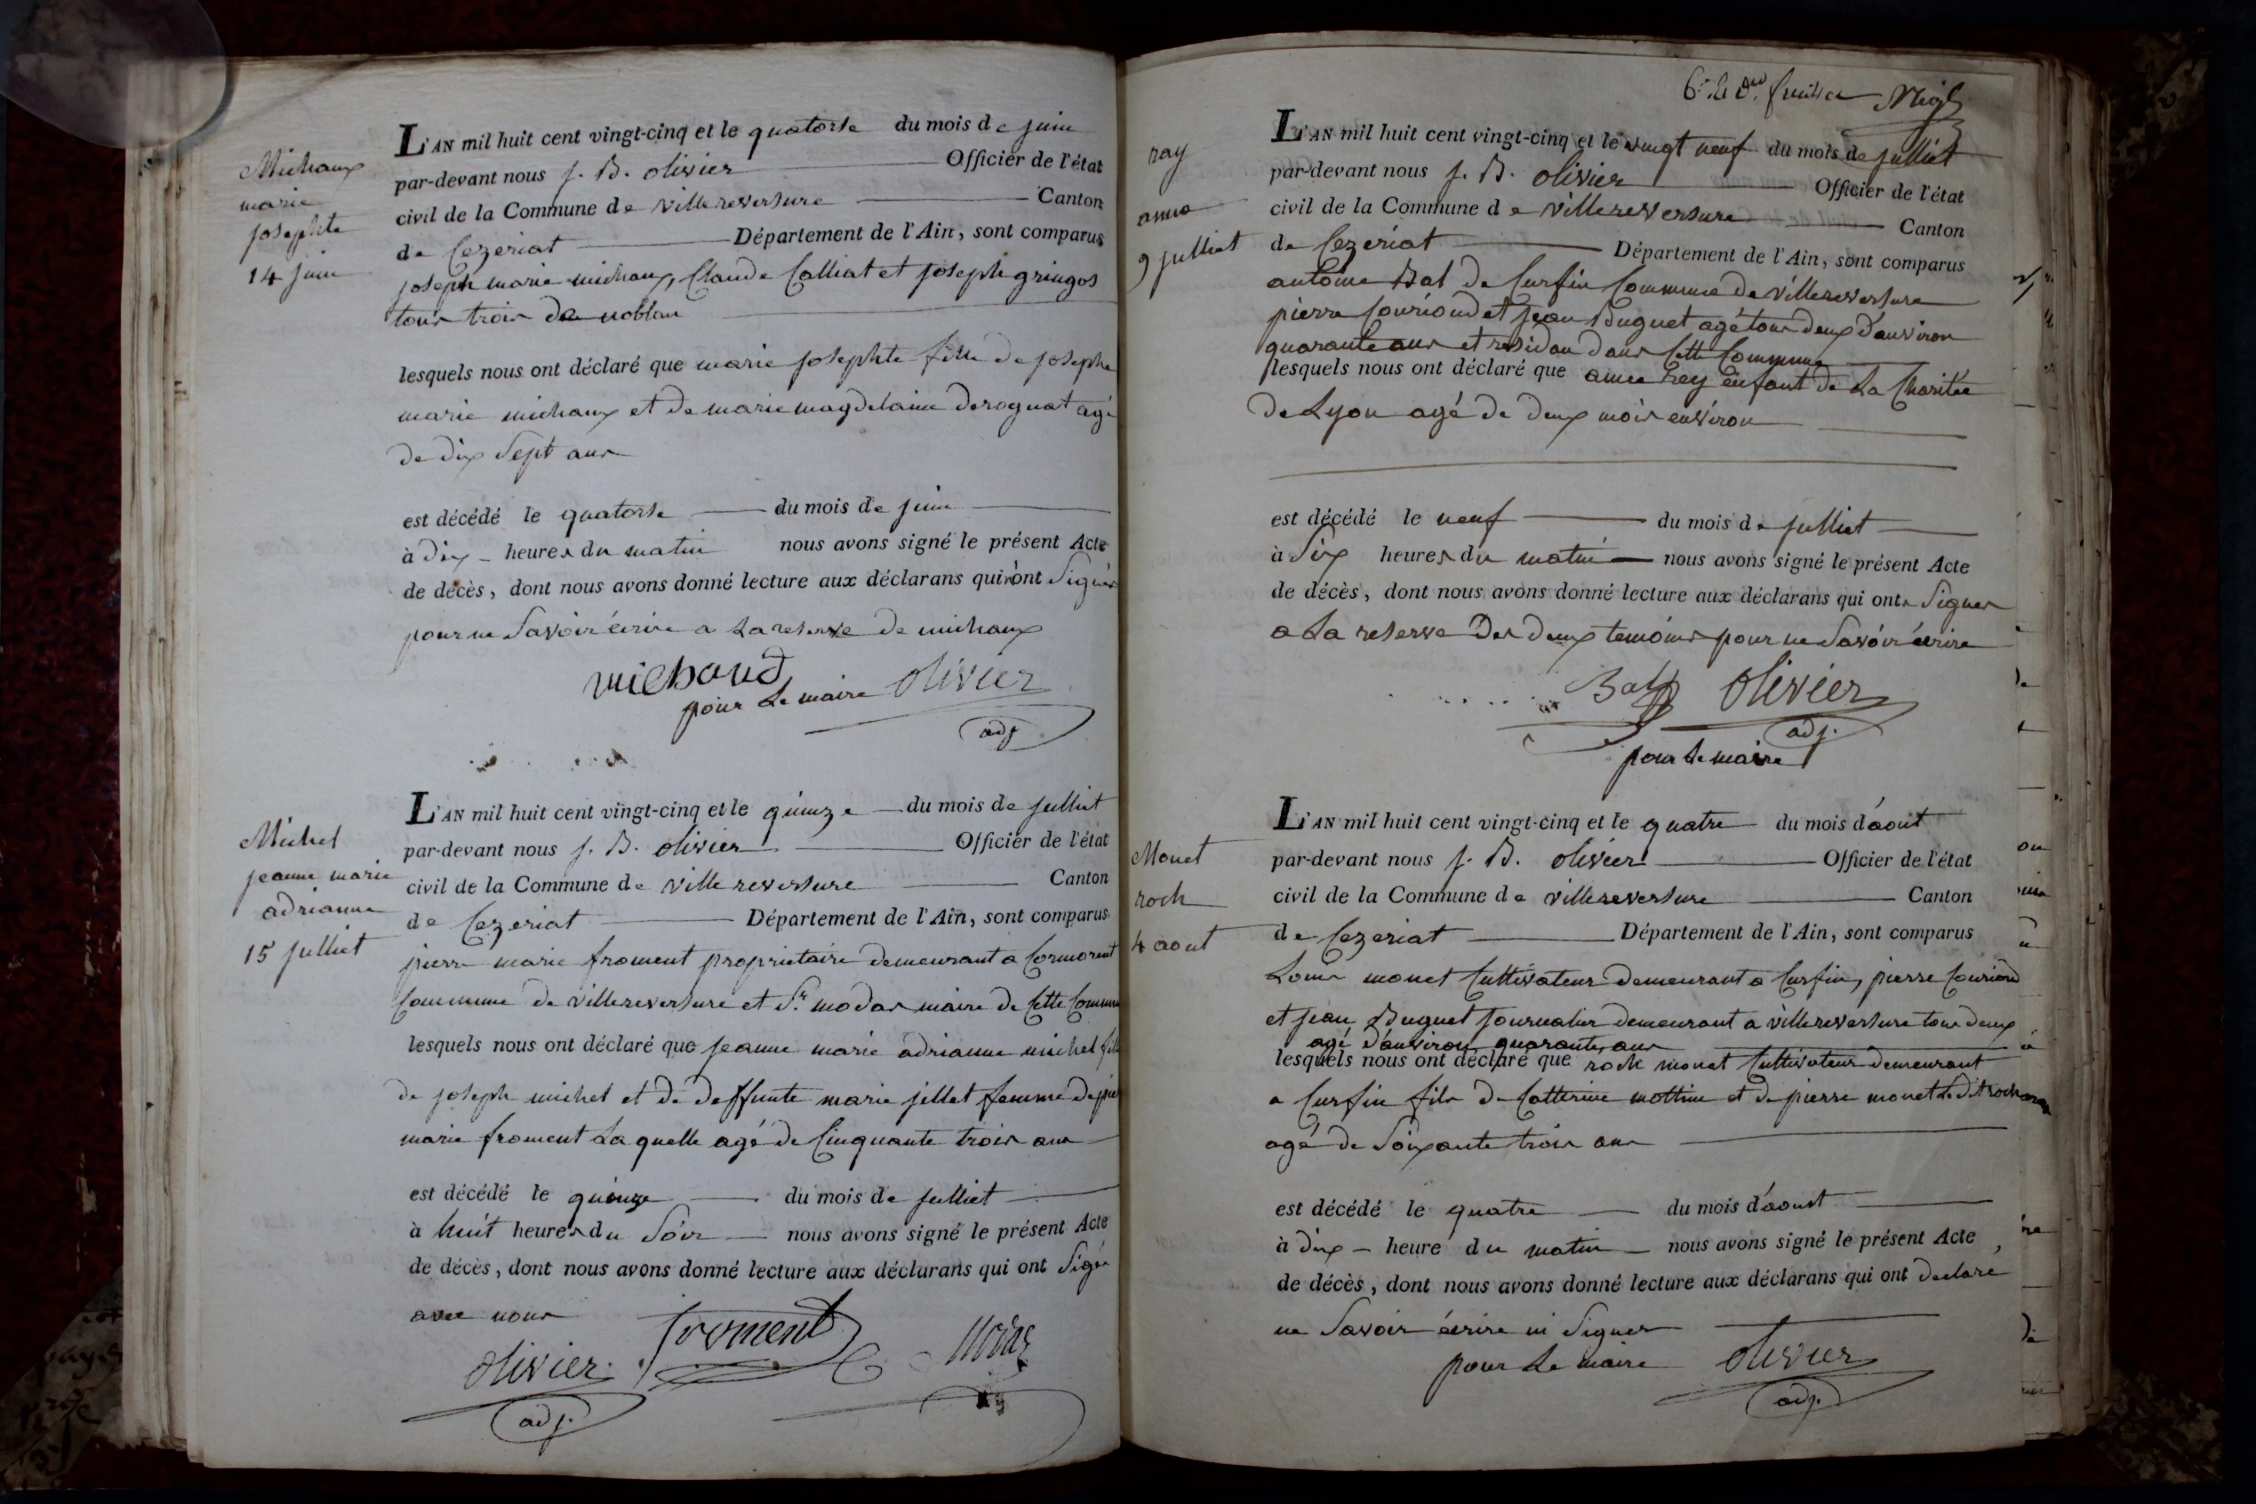 Michaux
marie
josephte
14 juin
L'AN mil huit cent vingt-cinq et le quatorse du mois de juin
par-devant nous j. B. olivier Officier de l'état
civil de la Commune de villereversure Canton
de Cezeriat Département de l'Ain, sont comparus
joseph marie michaux, Claude Calliat et joseph gringos
tous trois de noblan
lesquels nous ont déclaré que marie josephte fille de joseph
marie michaux et de marie magdelaine derognat agé
de dix sept ans
est décédé le quatorse du mois de juin
à dix heures du matin nous avons signé le présent Acte
de décès, dont nous avons donné lecture aux déclarans qui n'ont signés
pour ne savoir écrire a la reserve de michaux
michaud
pour le maire olivier
adj.
Michel
jeanne marie
adrianne
15 julliet
L'AN mil huit cent vingt-cinq et le quinze du mois de julliet
par-devant nous j. B. olivier Officier de l'état
civil de la Commune de villereversure Canton
de Cezeriat Département de l'Ain, sont comparus
pierre marie froment proprietaire demeurant a Cormorent
Commune de villereversure et Sr modas maire de Cette Commune
lesquels nous ont déclaré que jeanne marie adrianne michel fille
de joseph michel et de deffunte marie jillet femme de pier
marie froment la quelle agé de Cinquante trois ans
est décédé le quinze du mois de julliet
à huit heures du soir nous avons signé le présent Acte
de décès, dont nous avons donné lecture aux déclarans qui ont signé
avec nous
olivier froment Modas
adj.
ray
anna
9 julliet
L'AN mil huit cent vingt-cinq et le vingt neuf du mois de julliet
par-devant nous j. B. olivier Officier de l'état
civil de la Commune de villereversure Canton
de Cezeriat Département de l'Ain, sont comparus
antoine Bal de Curfin Commune de villereversure
pierre Couriond et jean Buguet agé tous deux d'environ
quarante ans et residan dans Cette Commune
lesquels nous ont déclaré que anne rey enfant de La Charitée
de Lyon agé de deux mois environ
est décédé le neuf du mois de julliet
à six heures du matin nous avons signé le présent Acte
de décès, dont nous avons donné lecture aux déclarans qui ont signer
a La reserve des deux temoins pour ne savoir écrire
Bal olivier
adj.
pour le maire
Monet
roch
4 aout
L'AN mil huit cent vingt-cinq et le quatre du mois d'aout
par-devant nous j. B. olivier Officier de l'état
civil de la Commune de villereversure Canton
de Cezeriat Département de l'Ain, sont comparus
Louis monet Cultivateur demeurant a Curfin, pierre Couriond
et jean Buguet journalier demeurant a villereversure tous deux
agé d'environ quarante ans
lesquels nous ont déclaré que roch monet Cultivateur demeurant
a Curfin fils de Catterine mottin et de pierre monet
agé de soixante trois ans
est décédé le quatre du mois d'aoust
à dix heure du matin nous avons signé le présent Acte
de décès, dont nous avons donné lecture aux déclarans qui ont declare
ne savoir écrire ni signer
pour le maire olivier
adj.